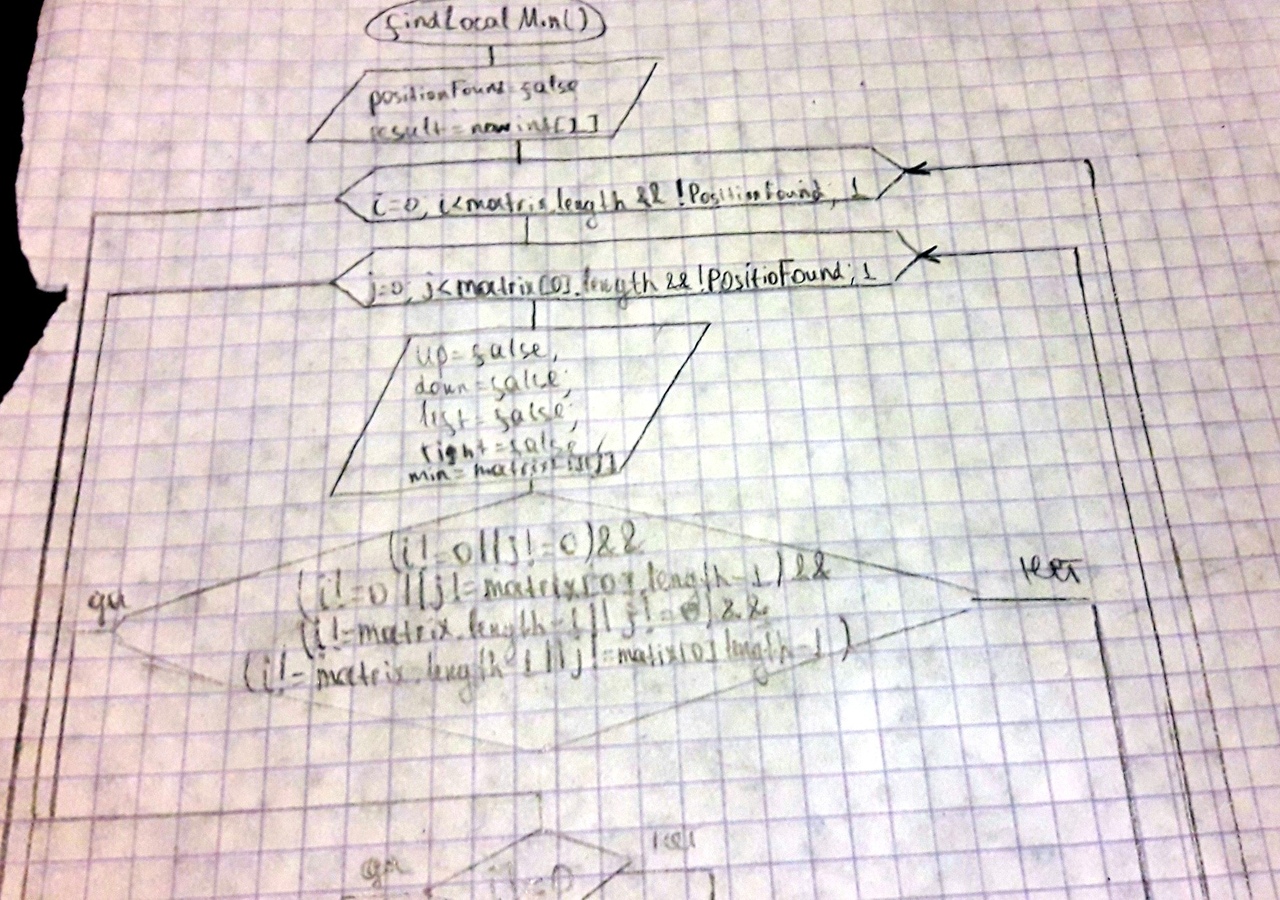 findLocalMin()
positionFound = false
result = new int[2]
i=0, i<matrix.length && !PositionFound; 1
j=0, j<matrix[0].length && !PositioFound; 1
up=false,
down=false;
left=false;
right=false;
min=matrix[i][j]
(i!=0||j!=0)&&
(i!=0||j!=matrix[0].length-1)&&
(i!=matrix.length-1||j!=0)&&
(i!=matrix.length-1||j!=matix[0].length-1)
да
нет
да
нет
i!=0